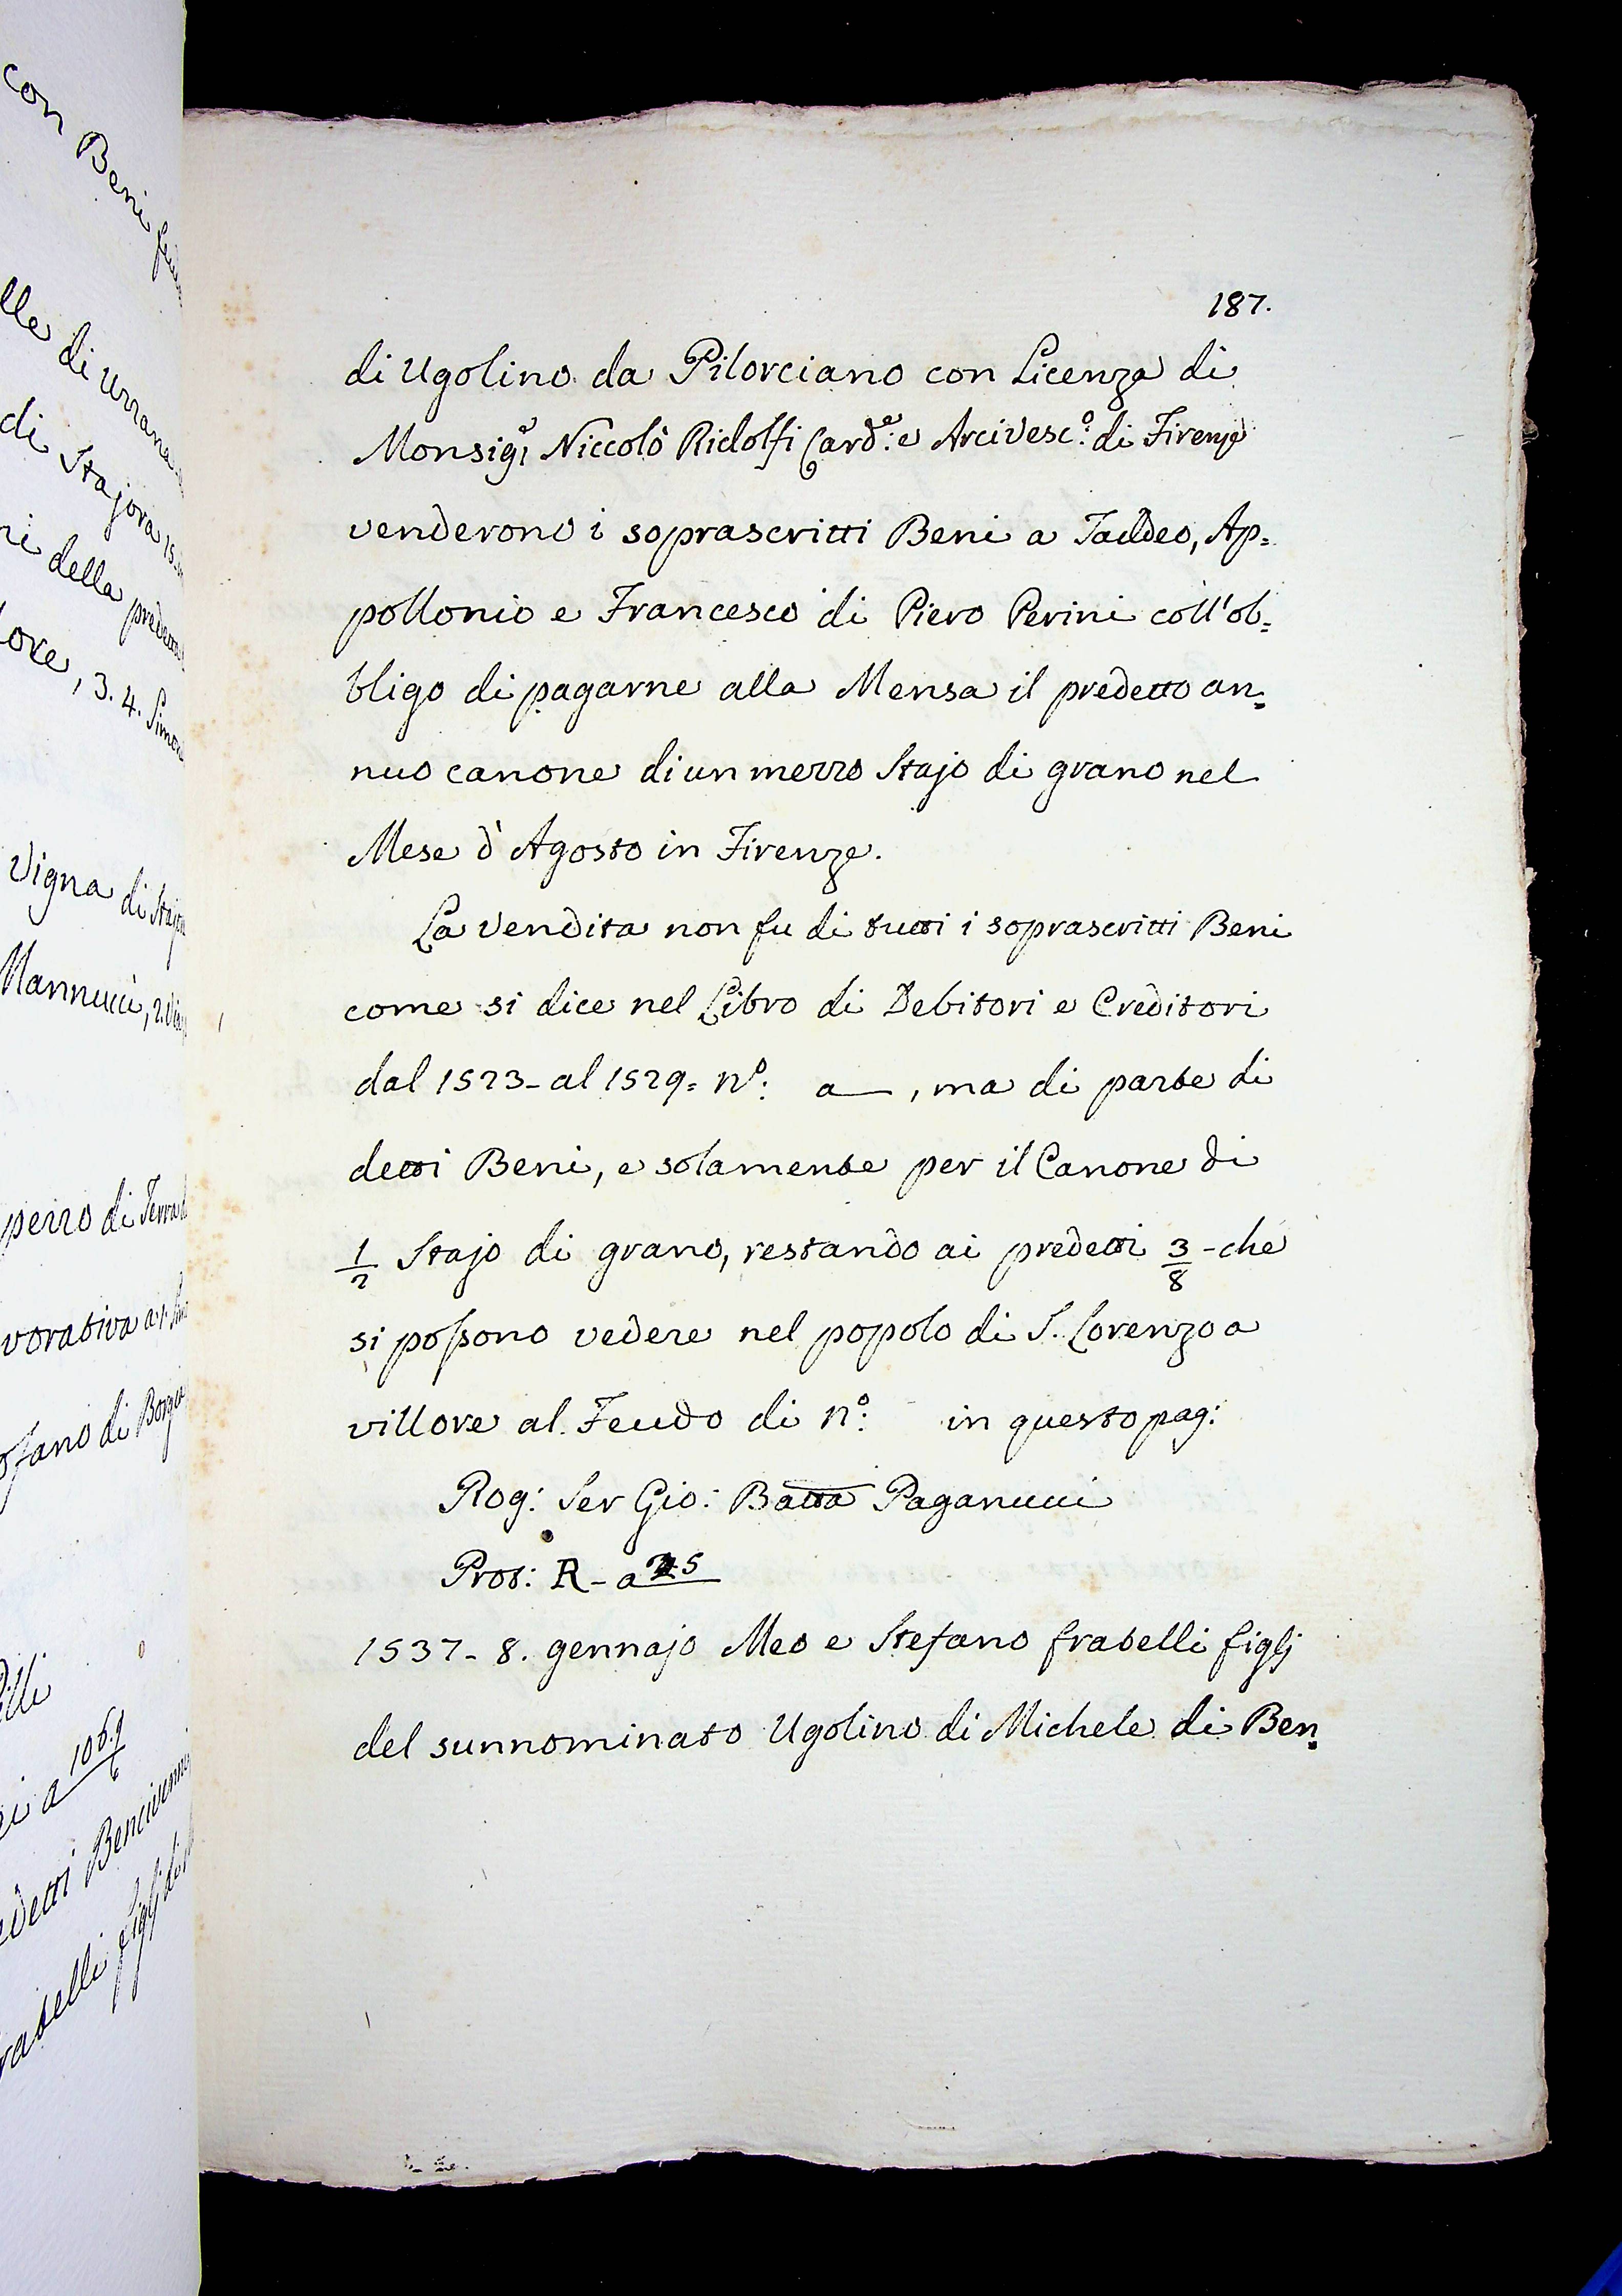 con Beni
lle di
di Stajora 15
ni della predetta
lore, 3. 4. Simone
Vigna di Stajora
Mannucci, 2. Via
pezzo di Terra
vorativa a 1.
ofano di Borgo
ei a 106.9
6
edetti Bencivenni
ratelli figlj di
187.
di Ugolino da Pilorciano con Licenza di
Monsig.r Niccolò Ridolfi Card.e e Arcivesc.o di Firenze
venderono i soprascritti Beni a Taddeo, Ap=
pollonio e Francesco di Piero Perini coll'ob=
bligo di pagarne alla Mensa il predetto an=
nuo canone di un mezzo Stajo di grano nel
Mese d'Agosto in Firenze.
La vendita non fu di tutti i soprascritti Beni
come si dice nel Libro di Debitori e Creditori
dal 1523- al 1529= n.o: a—, ma di parte di
detti Beni, e solamente per il Canone di
1/2 Stajo di grano, restando ai predetti 3/8 - che
si possono vedere nel popolo di S. Lorenzo a
villore al Feudo di n.o: in questo pag:
Rog: Ser Gio: Batta Paganucci
Prot: R- a 5
1537- 8. gennajo Meo e Stefano fratelli figlj
del sunnominato Ugolino di Michele di Ben=